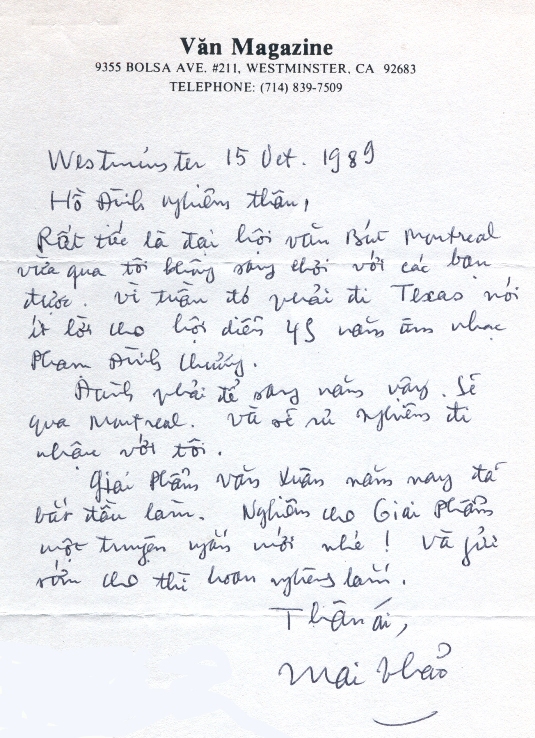 Văn Magazine
9355 BOLSA AVE. #211, WESTMINSTER, CA 92683
TELEPHONE: (714) 839-7509
Westminster 15 Oct. 1989
Hồ Đình Nghiêm thân,
Rất tiếc là đại hội văn Bút Montreal
vừa qua tôi không sang chơi với các bạn
được. Vì tuần đó phải đi Texas nói
ít lời cho hội diễn 45 năm âm nhạc
Phạm Đình Chương.
Đành phải để sang năm vậy. Sẽ
qua Montreal. Và sẽ rủ Nghiêm đi
nhậu với tôi.
Giai Phẩm Văn Xuân năm nay đã
bắt đầu làm. Nghiêm cho Giai Phẩm
một truyện ngắn mới nhé! Và gửi
sớm cho thì hoan nghênh lắm.
Thân ái,
Mai Thảo